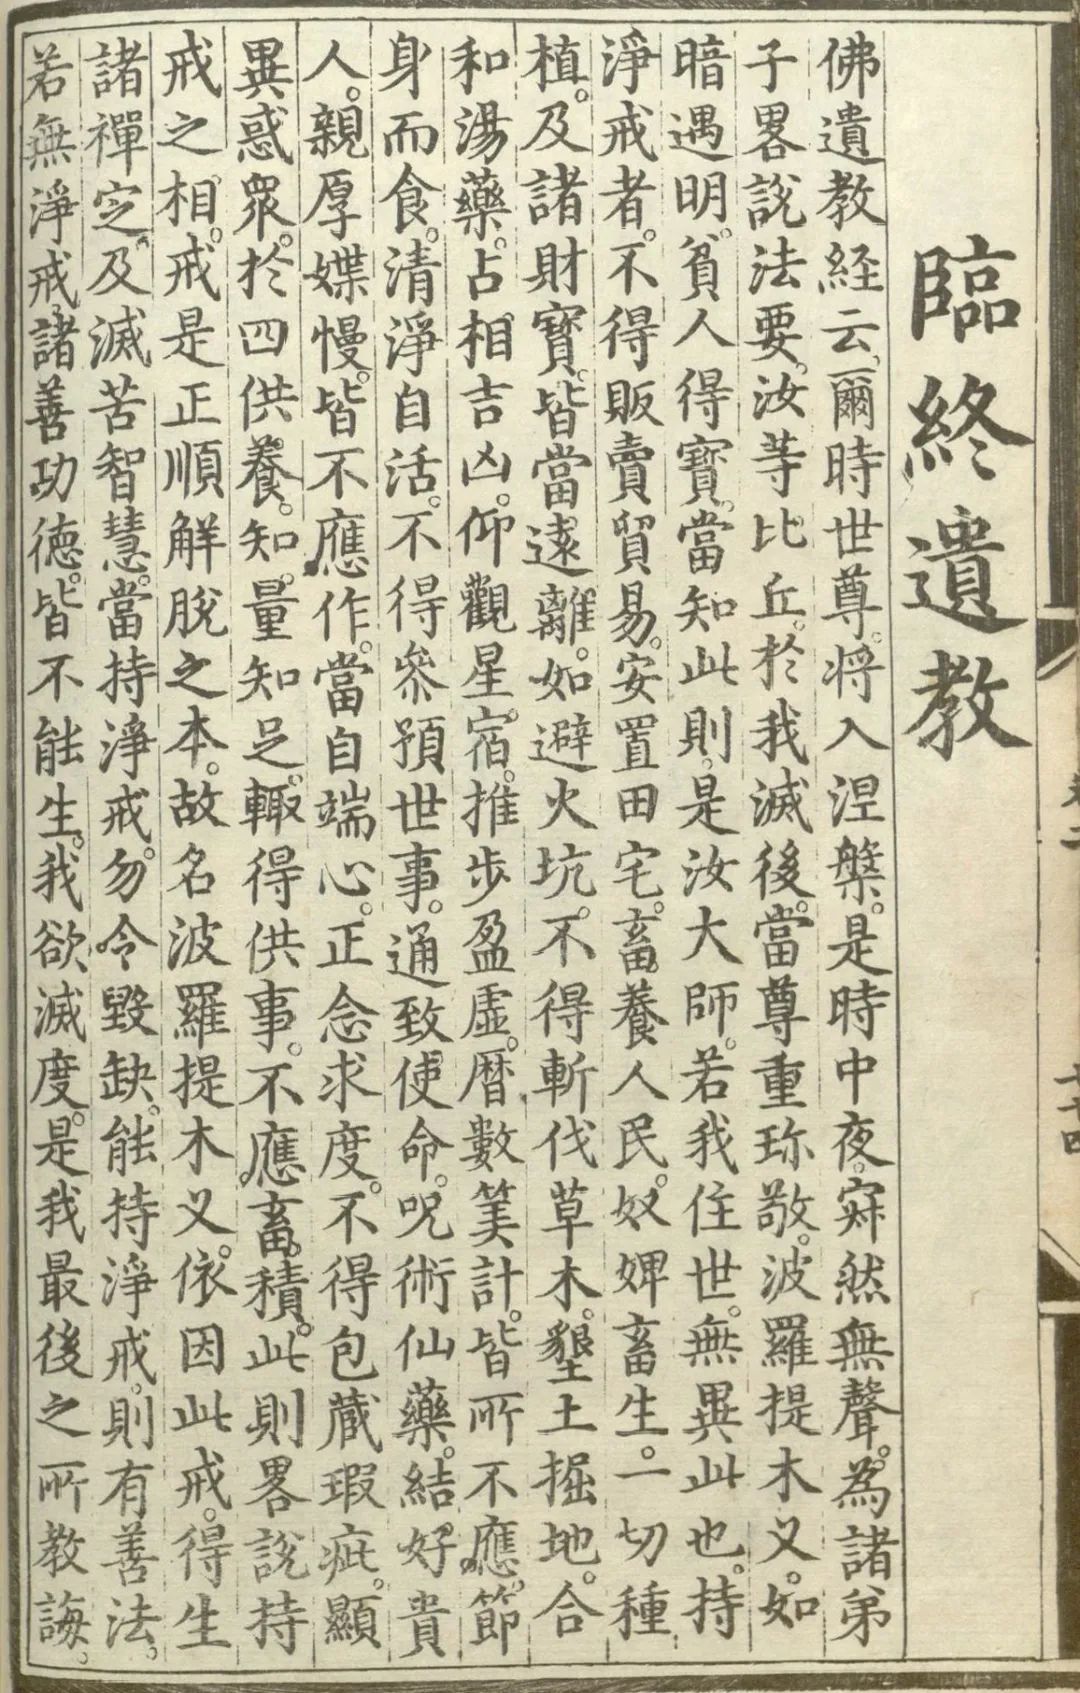 臨終遺教
佛遺教経云。爾時世尊。将入涅槃。是時中夜。寂然無聲。為諸弟
子畧說法要。汝等比丘。於我滅後。當尊重珎敬。波羅提木乂。如
暗遇明。貧人得寶。當知此則。是汝大師。若我住世。無異此也。持
淨戒者。不得販賣貿易。安置田宅。畜養人民。奴婢畜生。一切種
植。及諸財寶。皆當遠離。如避火坑。不得斬伐草木。墾土掘地。合
和湯藥。占相吉凶。仰觀星宿。推步盈虛。暦數筭計。皆所不應。節
身而食。清淨自活。不得叅預世事。通致使命。呪術仙藥。結好貴
人。親厚媟慢。皆不應作。當自端心。正念求度。不得包藏瑕疵。顯
異惑眾。於四供養。知量知足。輙得供事。不應畜積。此則畧說持
戒之相。戒是正順解脫之本。故名波羅提木乂。依因此戒。得生
諸禪定。及滅苦智慧。當持淨戒。勿令毀缺。能持淨戒。則有善法。
若無淨戒諸善功德。皆不能生。我欲滅度。是我最後之所教誨。